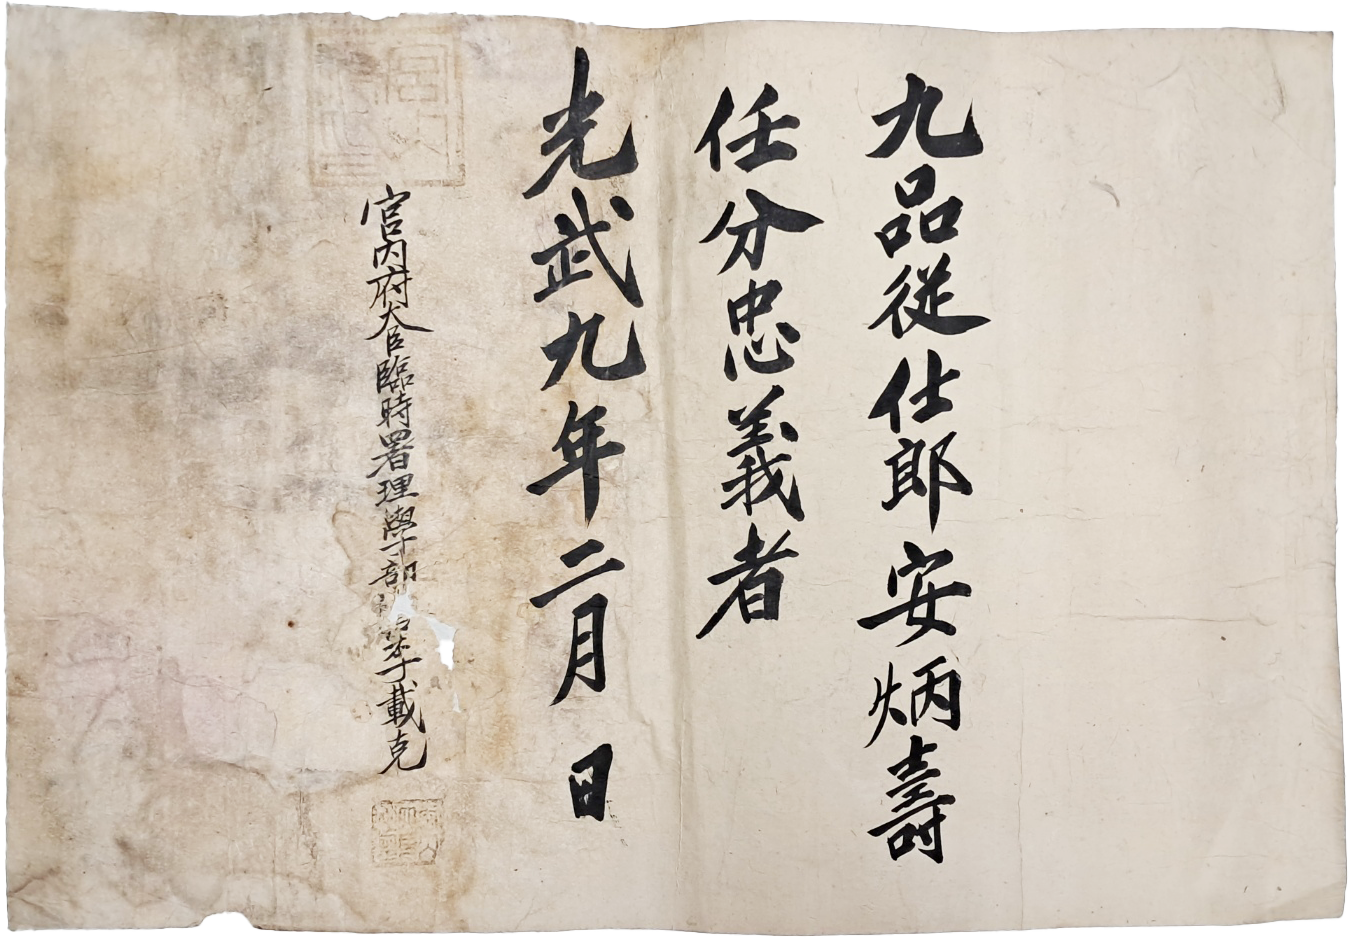 九品從仕郎安炳壽
任分忠義者
光武九年二月 日
宮內府大臣臨時署理學部大臣李載克